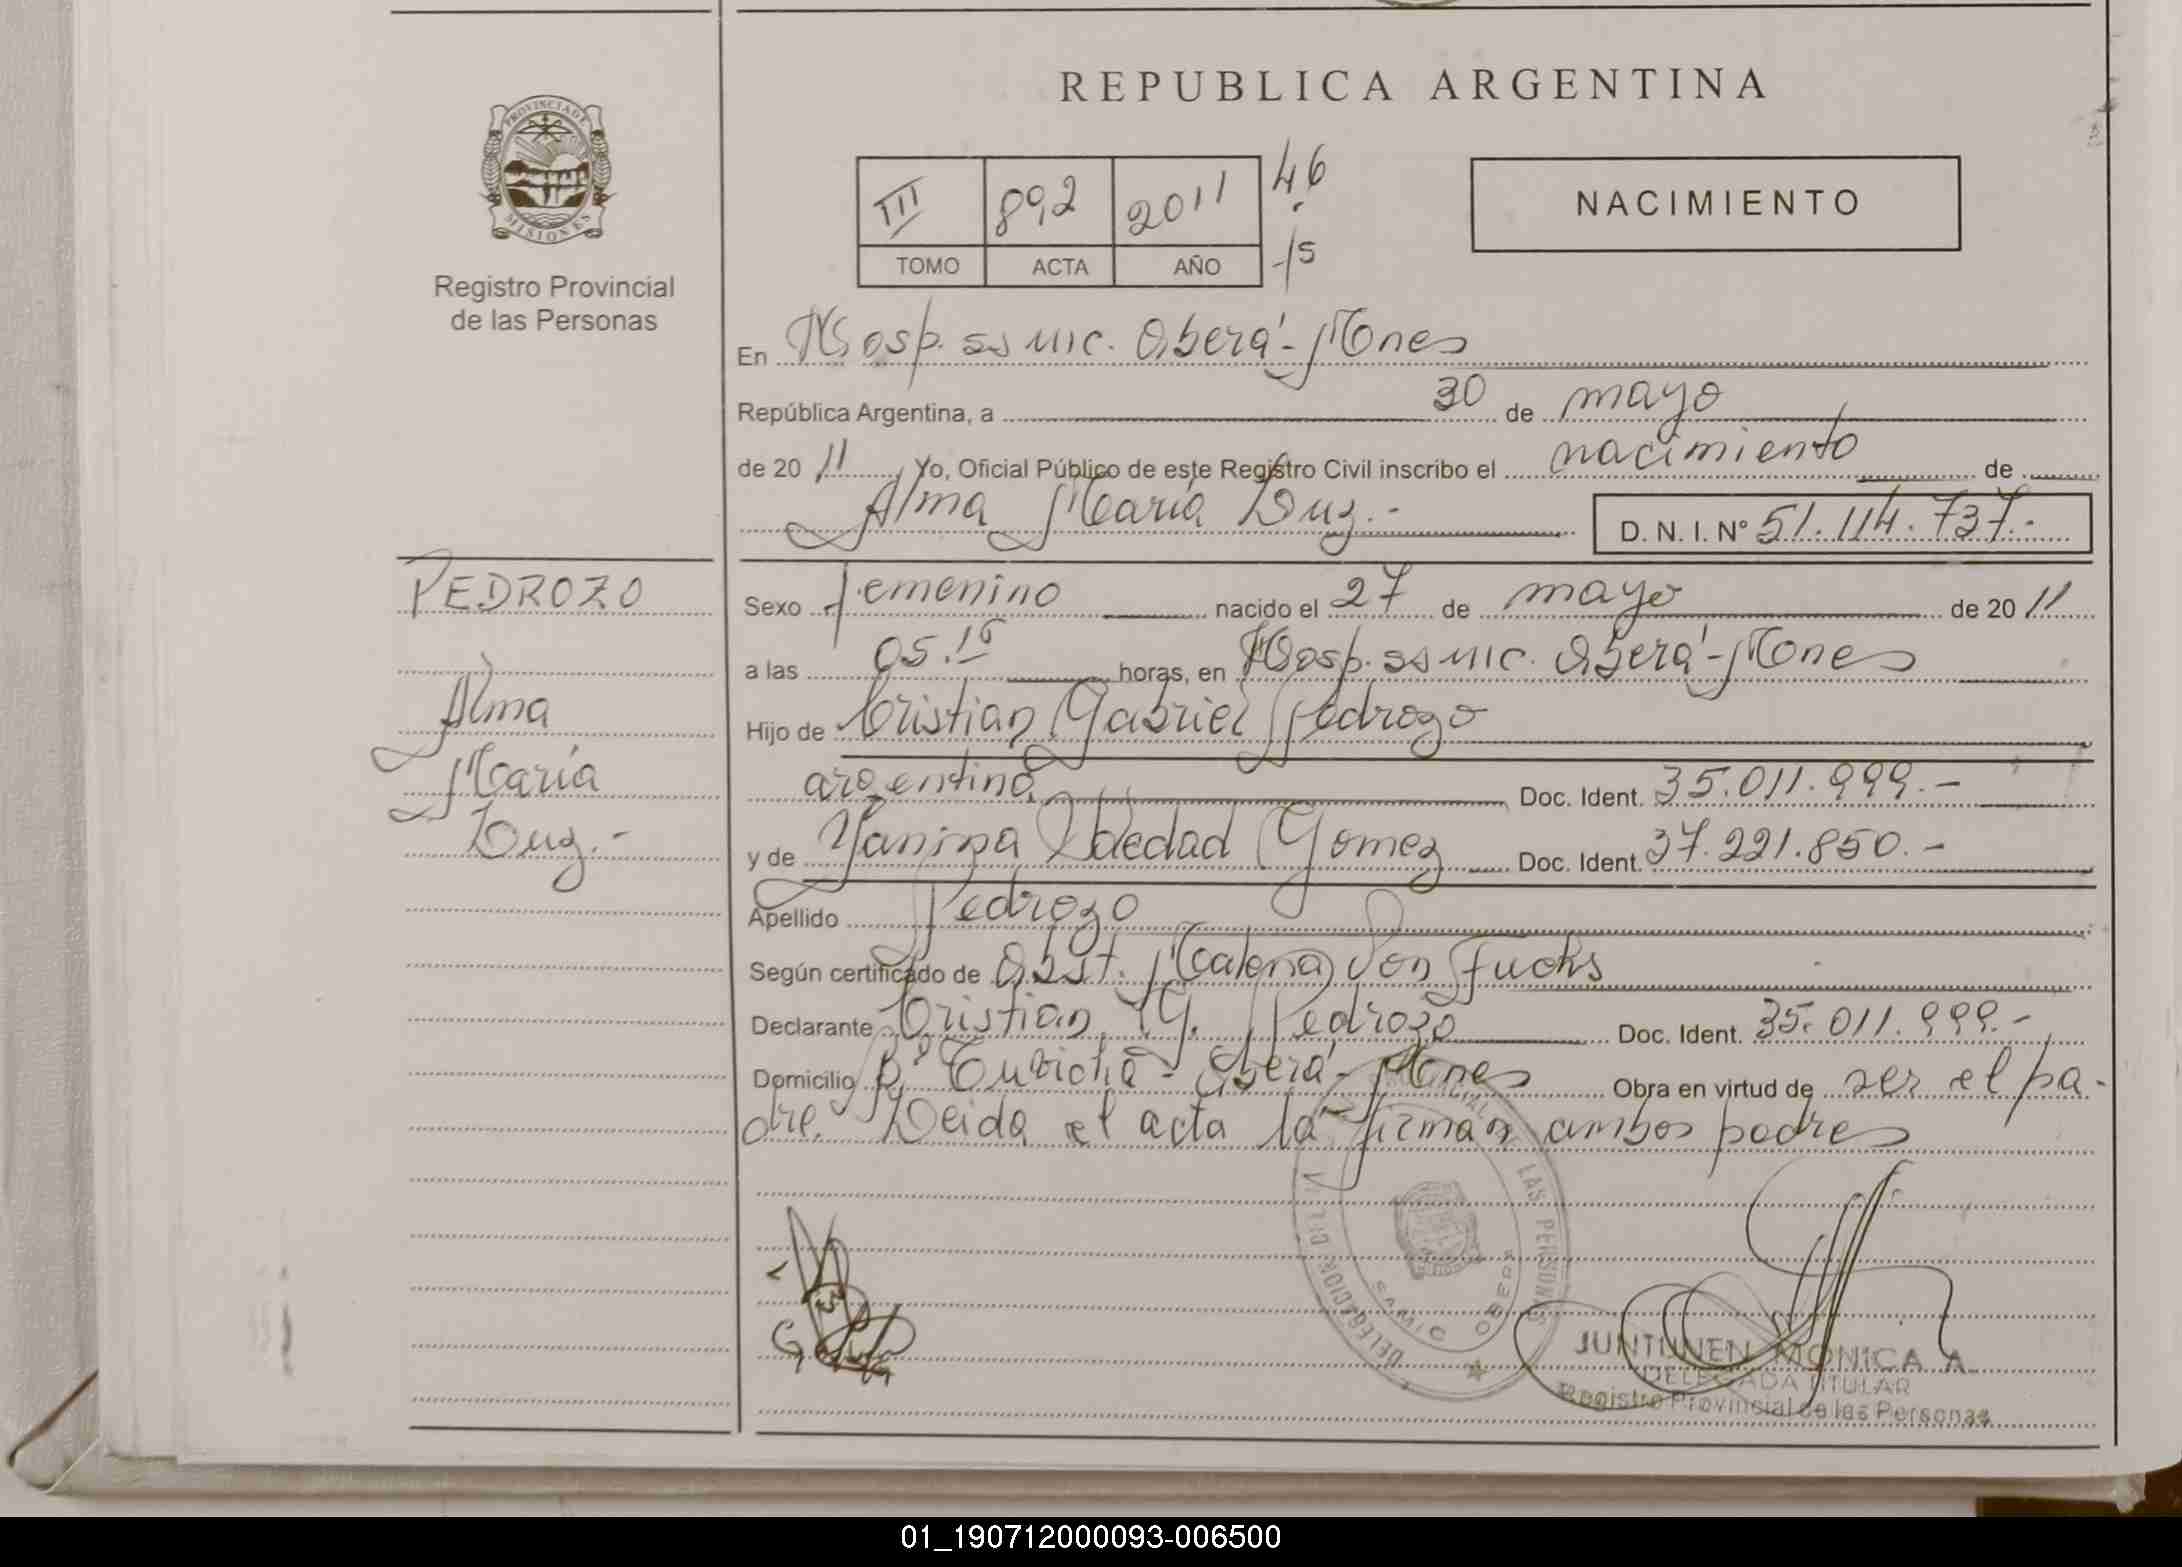 REPUBLICA ARGENTINA
PROVINCIA DE
MISIONES
Registro Provincial
de las Personas
III 892 2011 46
TOMO ACTA AÑO 15
NACIMIENTO
En Hosp. ss mc. Oberá - Mnes
República Argentina, a 30 de mayo
de 20 11, Yo, Oficial Público de este Registro Civil inscribo el nacimiento de
Alma María Luz.- D. N. I. Nº 51.114.737.-
PEDROZO
Alma
María
Luz.-
Sexo femenino nacido el 27 de mayo de 20 11
a las 05.15 horas, en Hosp. ss mc. Oberá - Mnes
Hijo de Cristian Gabriel Pedrozo
argentino, Doc. Ident. 35.011.999.-
y de Yanina Soledad Gomez Doc. Ident. 37.221.850.-
Apellido Pedrozo
Según certificado de Obst. Malena Von Fuchs
Declarante Cristian G. Pedrozo Doc. Ident. 35.011.999.-
Domicilio Bº Tuvichá - Oberá - Mnes Obra en virtud de ser el pa-
dre. Leida el acta la firman ambos padres
DELEGACION DEL LAS PERSONAS
OBERA
JUNTUNEN MONICA A.
DELEGADA TITULAR
Registro Provincial de las Personas
01_190712000093-006500